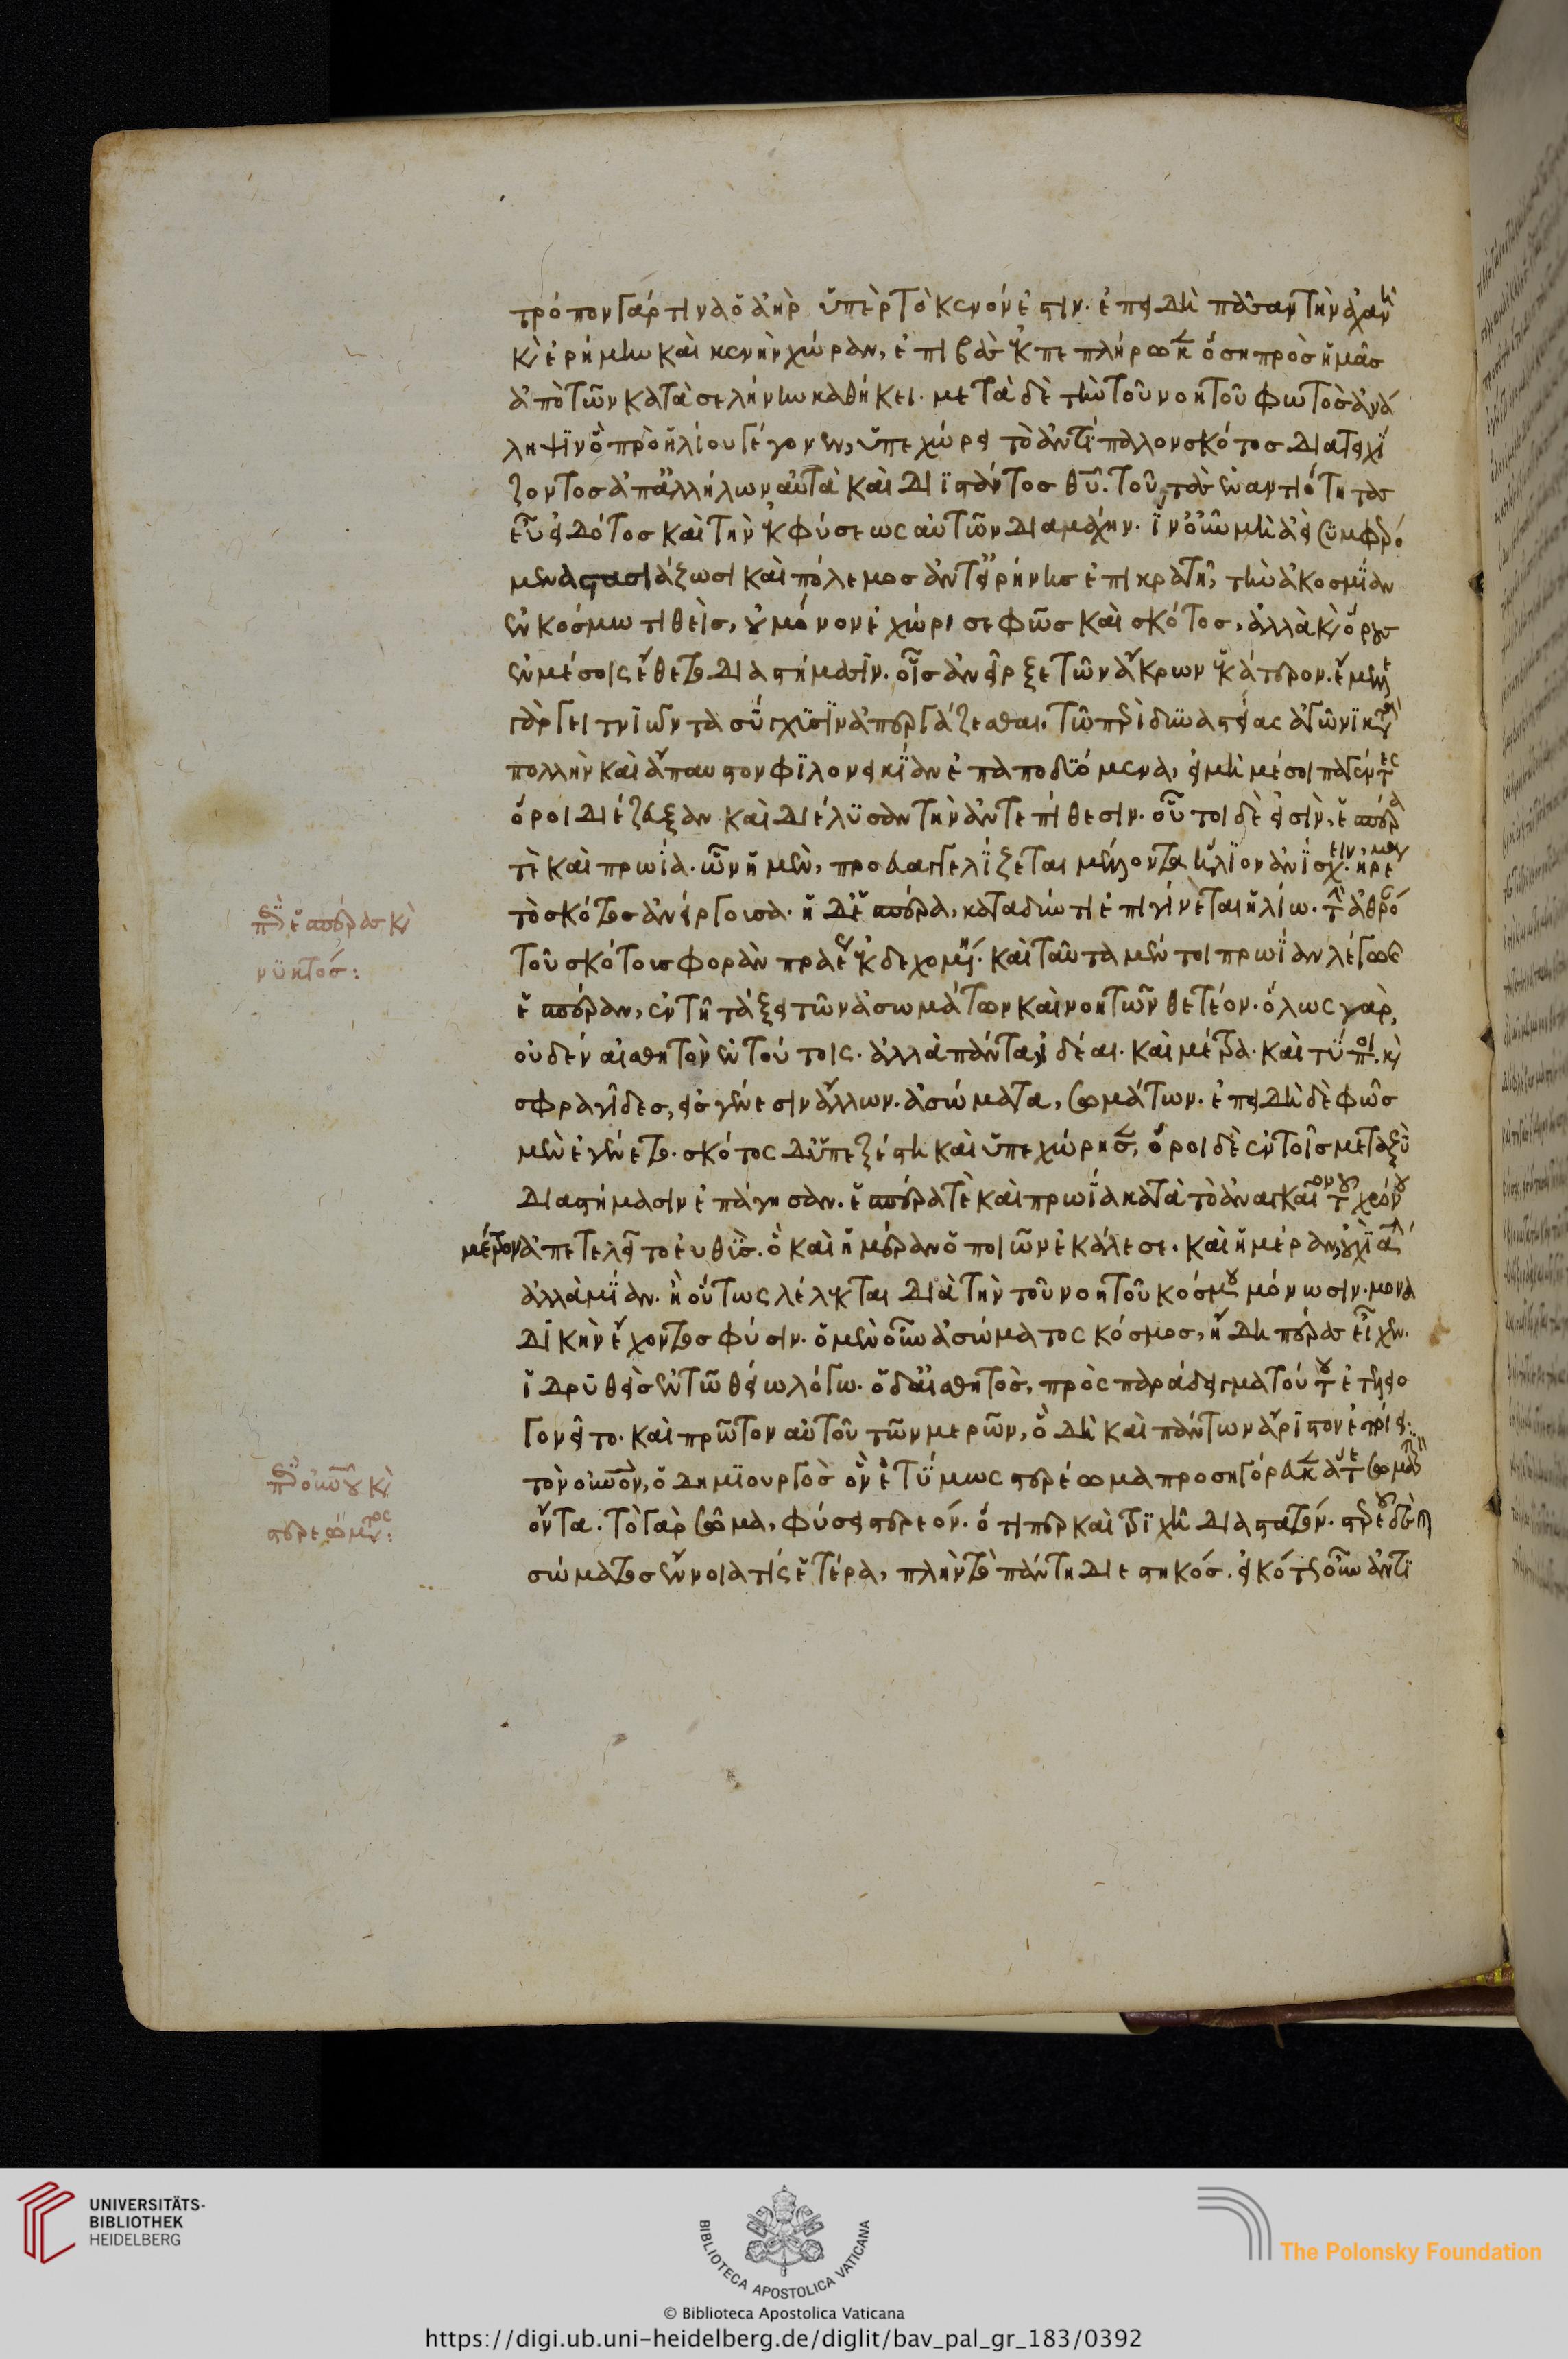 τρόπον γάρ τινα ὁ ἀὴρ ὑπὲρ τὸ κενόν ἐστιν. ἐπειδὴ πᾶσαν τὴν ἀχανῆ
κ̀ ἐρήμην καὶ κενὴν χώραν, ἐπιβὰς ἐκπεπλήρωκε ὅση πρὸς ἡμᾶς
ἀπὸ τῶν κατὰ σελήνην καθήκει. μετὰ δὲ τὴν τοῦ νοητοῦ φωτὸς ἀνά
ληψϊν ὃ πρὸ ἡλίου γέγονεν, ὑπεχώρει τὸ ἀντίπαλον σκότος διατειχί
ζοντος ἀπ' ἀλλήλων αὐτὰ καὶ διϊστάντος θῦ. τοῦ τὰς ἐναντιότητας
εὖ εἰδότος καὶ τὴν ἐκ φύσεως αὐτῶν διαμάχην. ἵν' οὖν μὴ ἀεὶ συμφερό
μενα στασιάζωσι καὶ πόλεμος ἀντ' εἰρήνης ἐπικρατῆ, τὴν ἀκοσμΐαν
ἐν κόσμω τιθεὶς, οὐ μόνον ἐχώρισε φῶς καὶ σκότος, ἀλλὰ κ̀ ὅρους
ἐν μέσοις ἔθετο διαστήμασϊν. οἷς ἀνεῖρξε τῶν ἄκρων ἑκάτερον. ἔμελλε
γὰρ γειτνϊῶντα σύγχϋσϊν ἀπεργάζεσθαι. τῶ περὶ δυναστείας ἀγῶνϊ κατὰ
πολλὴν καὶ ἄπαυστον φϊλονεικΐαν ἐπαποδϋόμενα, εἰ μὴ μέσοι παγέντες
ὅροι διέζευξαν καὶ διέλϋσαν τὴν ἀντεπίθεσιν. οὗτοι δὲ εἰσὶν, ἑσπέρα
τὲ καὶ πρωΐα. ὧν ἡ μὲν, προευαγγελΐζεται μέλλοντα ἥλϊον ἀνΐσχειν, ἠρέμα
τὸ σκότος ἀνείργουσα. ἡ δ' ἑσπέρα, καταδύντι ἐπιγίνεται ἡλίω. τὴν ἀθρό
τοῦ σκότους φορὰν πραέως ἐκδεχομένη. καὶ ταῦτα μέντοι πρωΐαν λέγω
ἑσπέραν, ἐν τῆ τάξει τῶν ἀσωμάτων καὶ νοητῶν θετέον. ὅλως γὰρ,
οὐδὲν αἰσθητὸν ἐν τούτοις. ἀλλὰ πάντα, ἰδέαι. καὶ μέτρα. καὶ τύποι. κ̀
σφραγῖδες, εἰς γένεσιν ἄλλων. ἀσώματα, σωμάτων. ἐπειδὴ δὲ φῶς
μὲν ἐγένετο. σκότος δ' ὑπεξέστη καὶ ὑπεχώρησε, ὅροι δὲ ἐν τοῖς μεταξὺ
διαστήμασιν ἐπάγησαν. ἑσπέρα τὲ καὶ πρωΐα κατὰ τὸ ἀναγκαῖον τοῦ χρόνου
μέτρον ἀπετελεῖτο εὐθϋς. ὃ καὶ ἡμέραν ὁ ποιῶν ἐκάλεσε. καὶ ἡμέραν, οὐχϊ α΄
ἀλλὰ μΐαν. ἣ οὕτως λέλεκται διὰ τὴν τοῦ νοητοῦ κόσμου μόνωσιν. μονα
δϊκὴν ἔχοντος φύσιν. ὁ μὲν οὖν ἀσώματος κόσμος, ἤδη πέρας εἶχεν.
ἱδρϋθεὶς ἐν τῶ θείω λόγω. ὁ δ' αἰσθητὸς, πρὸς παράδειγμα τούτου ἐτελειο
γονεῖτο. καὶ πρῶτον αὐτοῦ τῶν μερῶν, ὃ δὴ καὶ πάντων ἄρϊστον ἐποίει.
τὸν οὐνὸν, ὁ δημϊουργὸς ὃν ἐτΰμως στερέωμα προσηγόρευκε ἅτε σωμα
ὄντα. τὸ γὰρ σῶμα, φύσει στερεόν. ὅτιπερ καὶ τρϊχῆ διαστατόν. στερεοῦ δὲ κ̀
σώματος ἔννοια τίς ἑτέρα, πλὴν τὸ πάντη διεστηκός. εἰκότως οὖν ἀντϊ
περὶ ἑσπέρας κ̀
νϋκτός:
περὶ οὐνοῦ κ̀
στερεώματος:
UNIVERSITÄTS-
BIBLIOTHEK
HEIDELBERG
BIBLIOTECA APOSTOLICA VATICANA
The Polonsky Foundation
© Biblioteca Apostolica Vaticana
https://digi.ub.uni-heidelberg.de/diglit/bav_pal_gr_183/0392